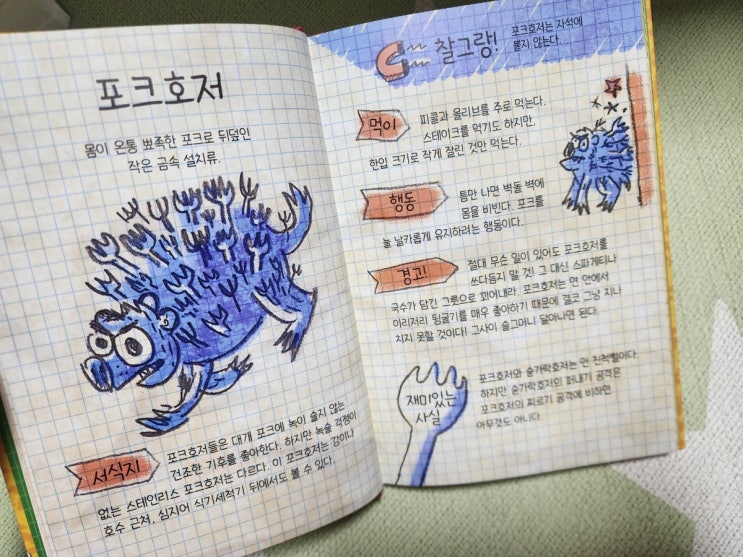 포크호저
몸이 온통 뾰족한 포크로 뒤덮인
작은 금속 설치류.
서식지
포크호저들은 대개 포크에 녹이 슬지 않는
건조한 기후를 좋아한다. 하지만 녹슬 걱정이
없는 스테인리스 포크호저는 다르다. 이 포크호저는 강이나
호수 근처, 심지어 식기세척기 뒤에서도 볼 수 있다.
찰그랑!
포크호저는 자석에
붙지 않는다.
먹이
피클과 올리브를 주로 먹는다.
스테이크를 먹기도 하지만,
한입 크기로 작게 잘린 것만 먹는다.
행동
틈만 나면 벽돌 벽에
몸을 비빈다. 포크를
늘 날카롭게 유지하려는 행동이다.
경고!
절대 무슨 일이 있어도 포크호저를
쓰다듬지 말 것! 그 대신 스파게티나
국수가 담긴 그릇으로 꾀어내라. 포크호저는 면 안에서
이리저리 뒹굴기를 매우 좋아하기 때문에 결코 그냥 지나
치지 못할 것이다! 그사이 슬그머니 달아나면 된다.
재미있는
사실
포크호저와 숟가락호저는 먼 친척뻘이다.
하지만 숟가락호저의 퍼내기 공격은
포크호저의 찌르기 공격에 비하면
아무것도 아니다.